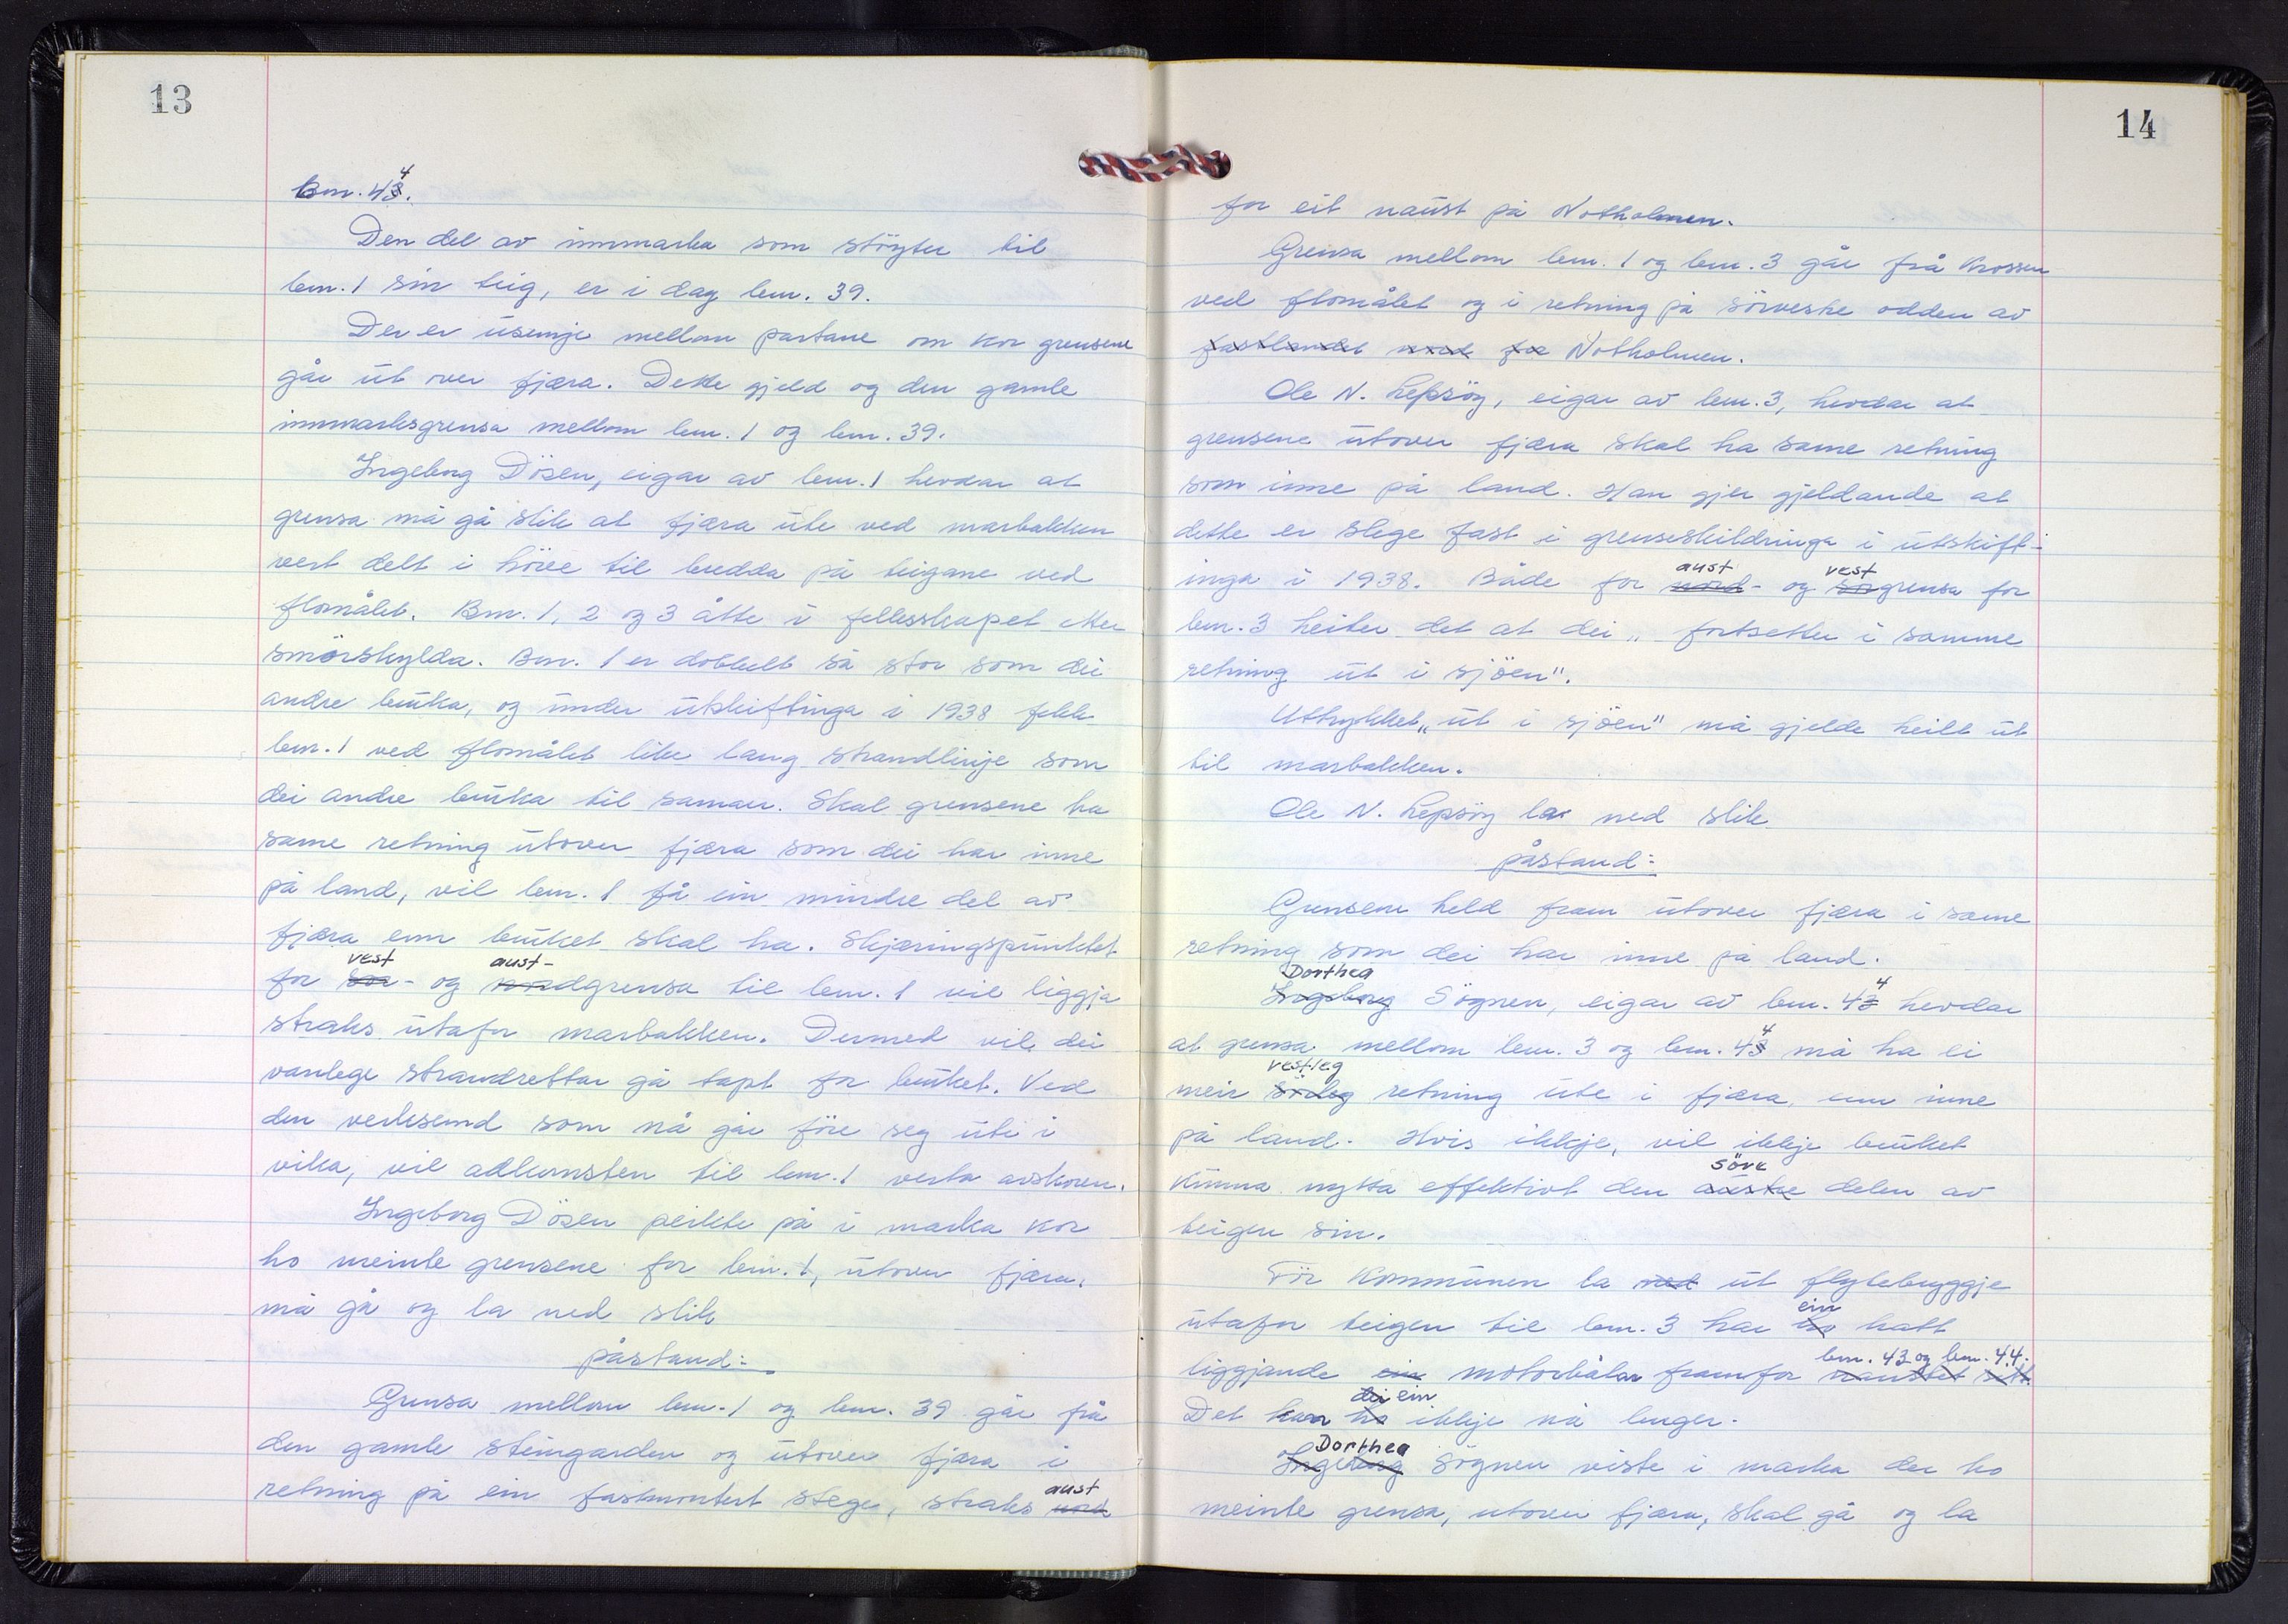 13
Bnr. 44.
Den del av innmarka som støyter til
bnr. 1 sin teig, er i dag bnr. 39.
Der er usemje mellom partane om kor grensene
går ut over fjæra. Dette gjeld og den gamle
innmarksgrensa mellom bnr. 1 og bnr. 39.
Ingeborg Dösen, eigar av bnr. 1 hevdar at
grensa må gå slik at fjæra ute ved marbakken
vert delt i höve til bredda på teigane ved
flomålet. Bnr. 1, 2 og 3 åtte i fellesskapet etter
smörskylda. Bnr. 1 er dobbelt så stor som dei
andre bruka, og under utskiftinga i 1938 fekk
bnr. 1 ved flomålet like lang strandlinje som
dei andre bruka til saman. Skal grensene ha
same retning utover fjæra som dei har inne
på land, vil bnr. 1 få ein mindre del av
fjæra enn bruket skal ha. Skjæringspunktet
vest aust-
for sør- og nordgrensa til bnr. 1 vil liggja
straks utafor marbakken. Dermed vil dei
vanlege strandrettar gå tapt for bruket. Ved
den verksemd som nå går före seg ute i
vika, vil adkomsten til bnr. 1 verta avskoren.
Ingeborg Dösen peikte på i marka kor
ho meinte grensene for bnr. 1, utover fjæra,
må gå og la ned slik
påstand:
Grensa mellom bnr. 1 og bnr. 39 går frå
den gamle steingarden og utover fjæra i
aust
retning på ein fastmontert stege, straks nord
14
for eit naust på Notholmen.
Grensa mellom bnr. 1 og bnr. 3 går frå krossen
ved flomålet og i retning på sörveste odden av
fastlandet nord for Notholmen.
Ole N. Lepsöy, eigar av bnr. 3, hevdar at
grensene utover fjæra skal ha same retning
som inne på land. Han gjer gjeldande at
dette er slege fast i grenseskildringa i utskift-
aust vest
inga i 1938. Både for nord- og sørgrensa for
bnr. 3 heiter det at dei „fortsetter i samme
retning ut i sjöen".
Uttrykket „ut i sjöen" må gjelde heilt ut
til marbakken.
Ole N. Lepsöy la ned slik
påstand:
Grensene held fram utover fjæra i same
retning som dei har inne på land.
Dorthea 4
Ingeborg Sögnen, eigar av bnr. 43 hevdar
4
at grensa mellom bnr. 3 og bnr. 43 må ha ei
vestleg
meir sörleg retning ute i fjæra, enn inne
på land. Hvis ikkje, vil ikkje bruket
söre
kunna nytta effektivt den austre delen av
teigen sin.
För kommunen la ned ut flytebryggje
ein
utafor teigen til bnr. 3 har ho hatt
bnr. 43 og bnr. 44.
liggjande ein motorbåtar framfor naustet sitt.
dei ein
Det kan ho ikkje nå lenger.
Dorthea
Ingeborg Sögnen viste i marka der ho
meinte grensa, utover fjæra, skal gå og la